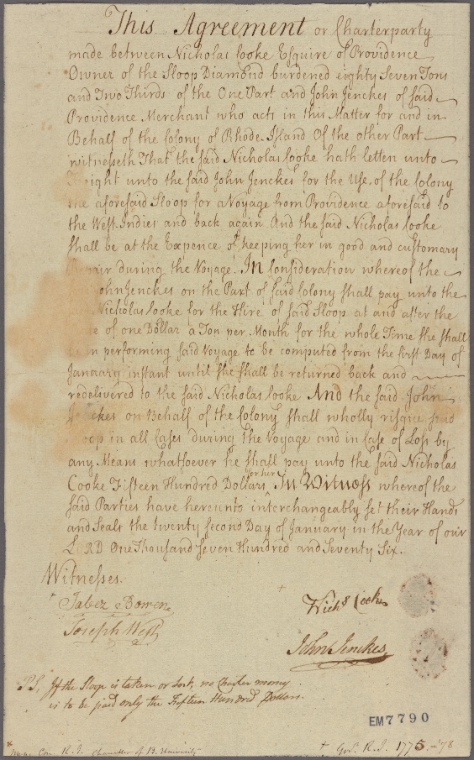 This Agreement or Charterparty
made between Nicholas Cooke Esquire of Providence
Owner of the Sloop Diamond burdened eighty Seven Tons
and Two Thirds of the One Part and John Jenckes of said
Providence Merchant who acts in this Matter for and in
Behalf of the Colony of Rhode Island Of the other Part
witnesseth That the said Nicholas Cooke hath letten unto
Freight unto the said John Jenckes for the Use of the Colony
the aforesaid Sloop for a Voyage from Providence aforesaid to
the West Indies and back again And the said Nicholas Cooke
shall be at the Expence of keeping her in good and customary
Repair during the Voyage. In Consideration whereof the
John Jenckes on the Part of said Colony shall pay unto the
Nicholas Cooke for the Hire of said Sloop at and after the
of one Dollar a Ton per Month for the whole Time she shall
been performing said Voyage to be computed from the first Day of
January instant until she shall be returned back and
redelivered to the said Nicholas Cooke And the said John
Jenckes on Behalf of the Colony shall wholly risque said
Sloop in all Cases during the Voyage and in Case of Loss by
any Means whatsoever he shall pay unto the said Nicholas
Cooke Fifteen Hundred Dollars. In Witness whereof the
said Parties have hereunto interchangeably set their Hands
and Seals the twenty second Day of January in the Year of our
LORD One Thousand Seven Hundred and Seventy Six.
Witnesses.
Jabez Bowen
Joseph West
Nichs Cooke
John Jenckes
P.S. If the Sloop is taken or lost, no Charter money
is to be paid only the Fifteen Hundred Dollars.
EM7790
R. I. Chancellor of B. University
† Gov. R. I. 1775-78